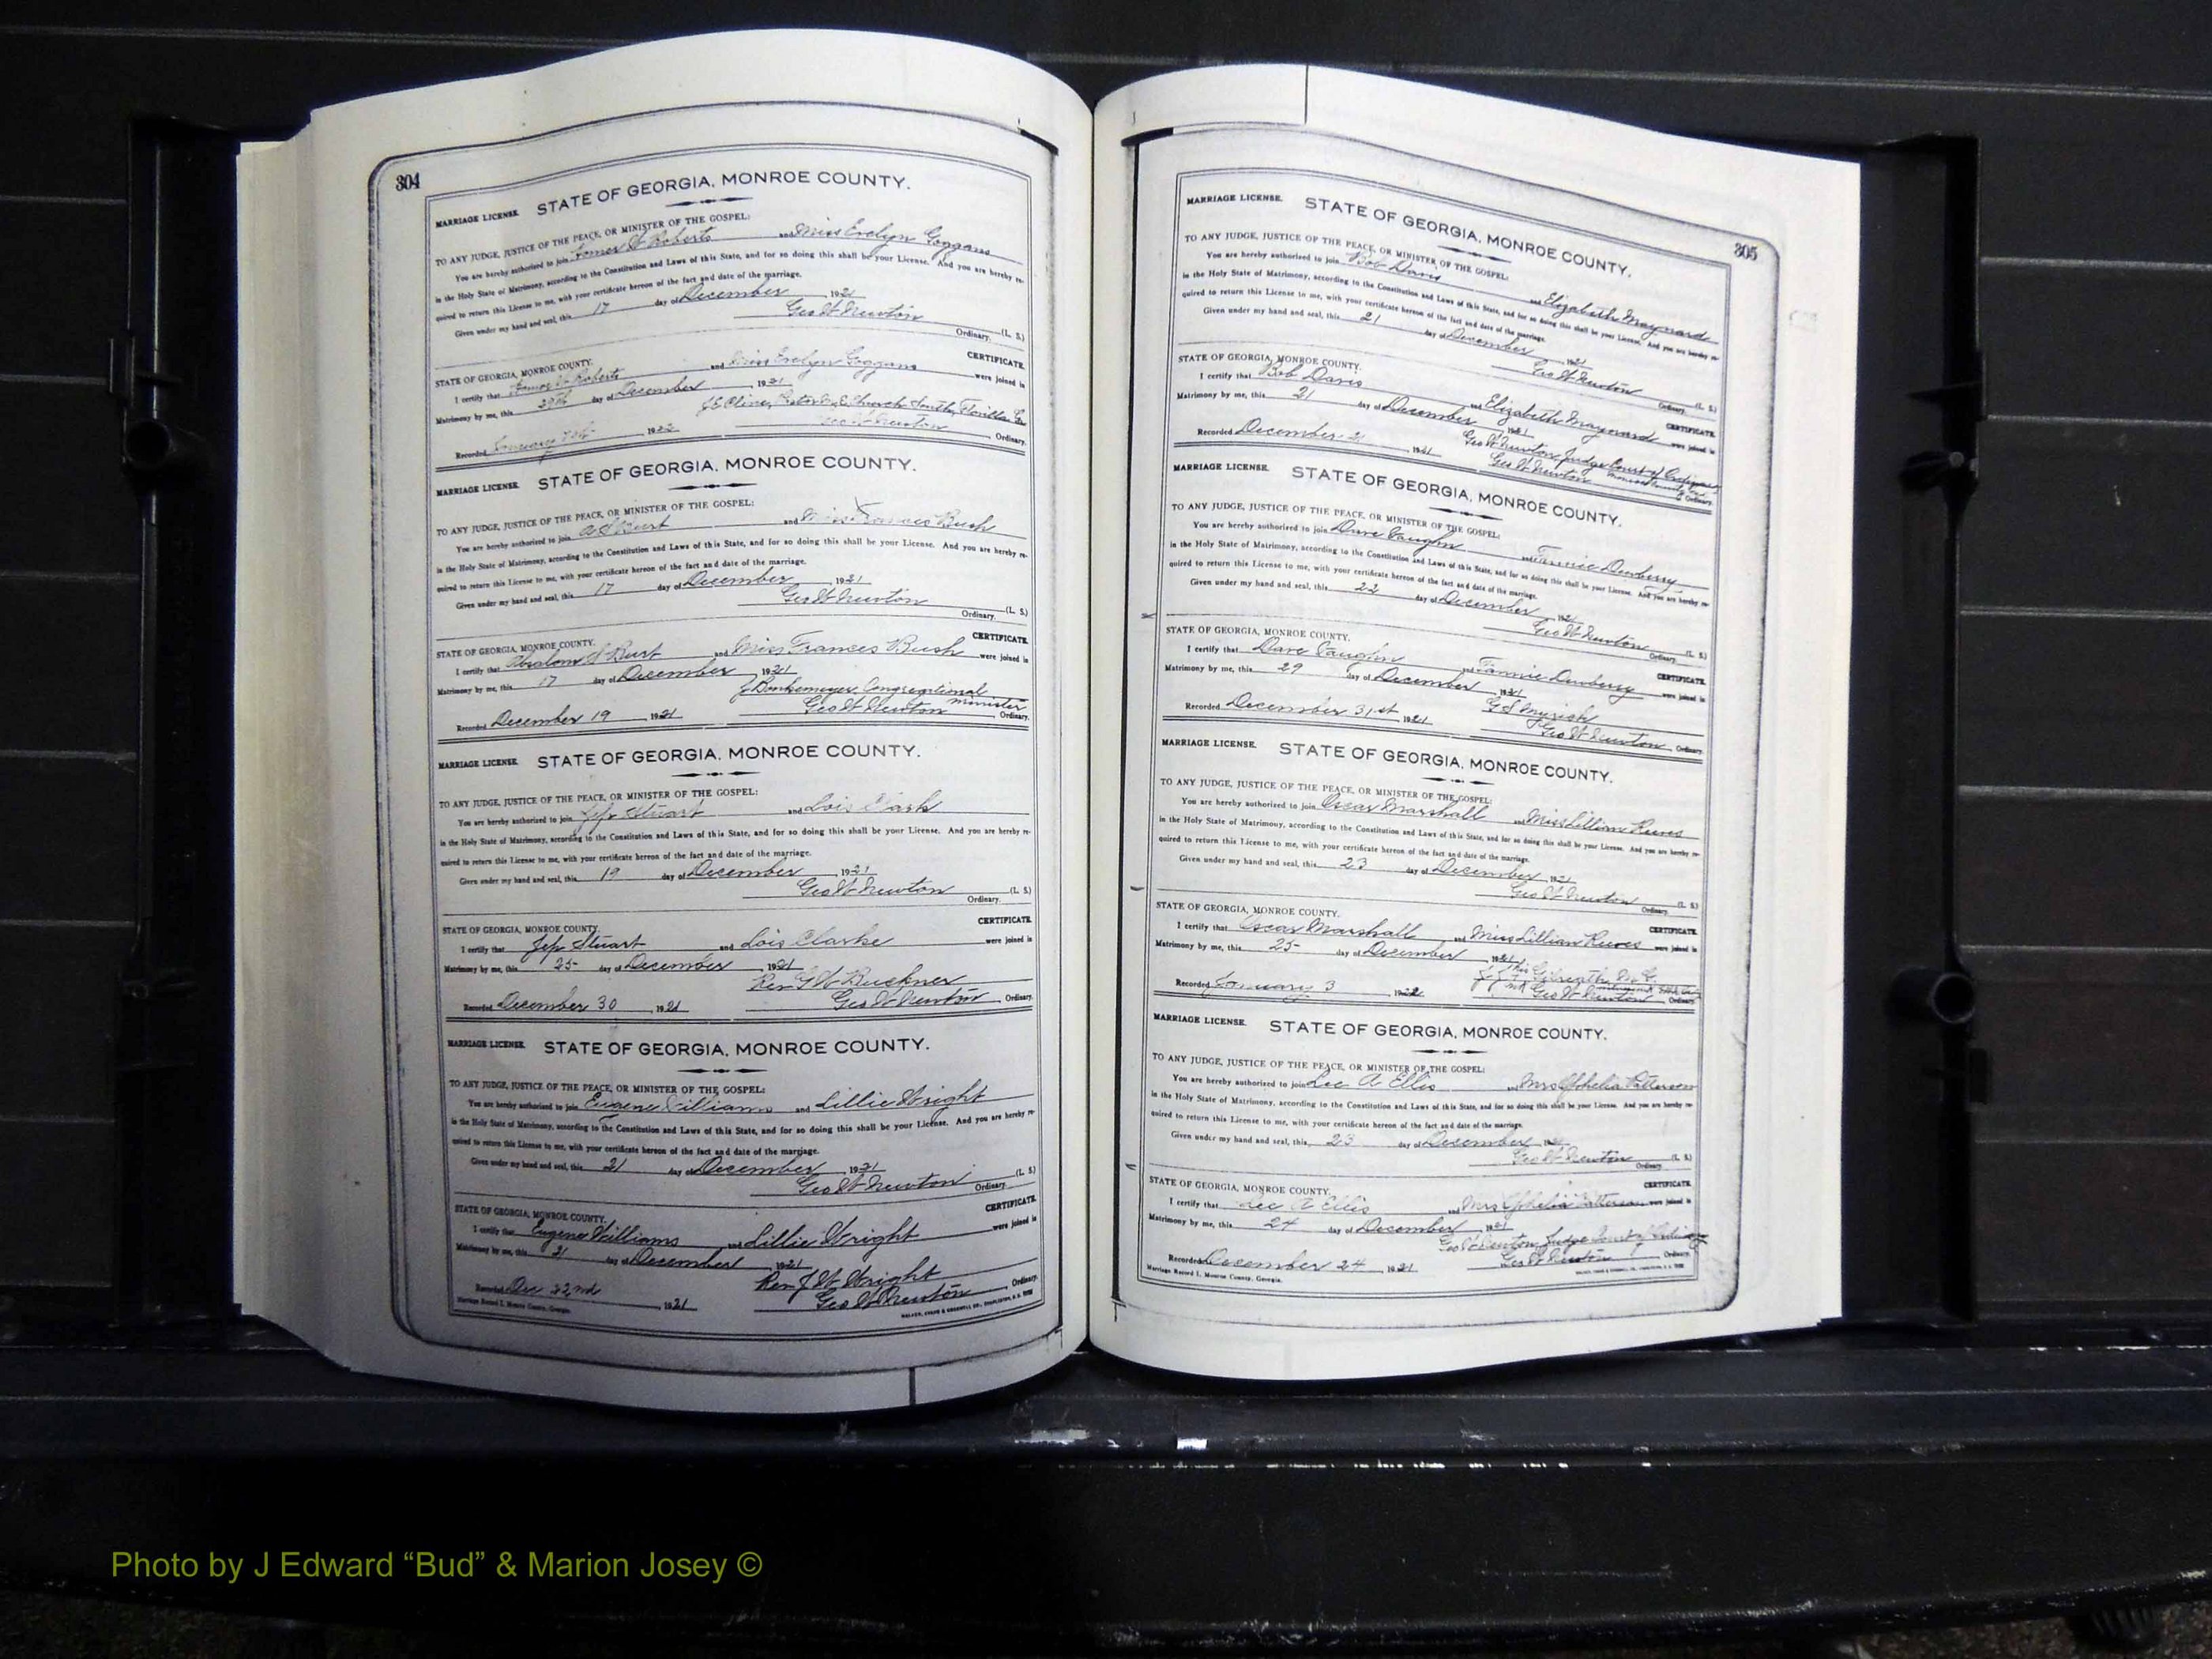 304
STATE OF GEORGIA, MONROE COUNTY.
MARRIAGE LICENSE.
TO ANY JUDGE, JUSTICE OF THE PEACE, OR MINISTER OF THE GOSPEL:
You are hereby authorized to join Roberts and Miss Evelyn Goggans
in the Holy State of Matrimony, according to the Constitution and Laws of this State, and for so doing this shall be your License. And you are hereby re-
quired to return this License to me, with your certificate hereon of the fact and date of the marriage.
Given under my hand and seal, this 17 day of December, 1921
Geo W Newton (L. S.)
Ordinary.
CERTIFICATE.
STATE OF GEORGIA, MONROE COUNTY.
I certify that Roberts and Miss Evelyn Goggans were joined in
Matrimony by me, this 29th day of December 1921
Pastor M. E. Church South, Flovilla Ga
Recorded January 1922 Geo W Newton Ordinary.
MARRIAGE LICENSE. STATE OF GEORGIA, MONROE COUNTY.
TO ANY JUDGE, JUSTICE OF THE PEACE, OR MINISTER OF THE GOSPEL:
You are hereby authorized to join A S Burt and Miss Frances Bush
in the Holy State of Matrimony, according to the Constitution and Laws of this State, and for so doing this shall be your License. And you are hereby re-
quired to return this License to me, with your certificate hereon of the fact and date of the marriage.
Given under my hand and seal, this 17 day of December, 1921
Geo W Newton (L. S.)
Ordinary.
CERTIFICATE.
STATE OF GEORGIA, MONROE COUNTY.
I certify that Absalom S Burt and Miss Frances Bush were joined in
Matrimony by me, this 17 day of December, 1921
Congregational minister
Recorded December 19 1921 Geo W Newton Ordinary.
MARRIAGE LICENSE. STATE OF GEORGIA, MONROE COUNTY.
TO ANY JUDGE, JUSTICE OF THE PEACE, OR MINISTER OF THE GOSPEL:
You are hereby authorized to join Jep Stuart and Lois Clark
in the Holy State of Matrimony, according to the Constitution and Laws of this State, and for so doing this shall be your License. And you are hereby re-
quired to return this License to me, with your certificate hereon of the fact and date of the marriage.
Given under my hand and seal, this 19 day of December, 1921
Geo W Newton (L. S.)
Ordinary.
CERTIFICATE.
STATE OF GEORGIA, MONROE COUNTY.
I certify that Jep Stuart and Lois Clarke were joined in
Matrimony by me, this 25 day of December, 1921
Rev G W Buckner
Recorded December 30, 1921 Geo W Newton Ordinary.
MARRIAGE LICENSE. STATE OF GEORGIA, MONROE COUNTY.
TO ANY JUDGE, JUSTICE OF THE PEACE, OR MINISTER OF THE GOSPEL:
You are hereby authorized to join Eugene Williams and Lillie Wright
in the Holy State of Matrimony, according to the Constitution and Laws of this State, and for so doing this shall be your License. And you are hereby re-
quired to return this License to me, with your certificate hereon of the fact and date of the marriage.
Given under my hand and seal, this 21 day of December, 1921
Geo W Newton (L. S.)
Ordinary.
CERTIFICATE.
STATE OF GEORGIA, MONROE COUNTY.
I certify that Eugene Williams and Lillie Wright were joined in
Matrimony by me, this 21 day of December, 1921
Rev J W Wright
Recorded Dec 22nd, 1921 Geo W Newton Ordinary.
Marriage Record I, Monroe County, Georgia.
305
MARRIAGE LICENSE. STATE OF GEORGIA, MONROE COUNTY.
TO ANY JUDGE, JUSTICE OF THE PEACE, OR MINISTER OF THE GOSPEL:
You are hereby authorized to join Bob Davis and Elizabeth Maynard
in the Holy State of Matrimony, according to the Constitution and Laws of this State, and for so doing this shall be your License. And you are hereby re-
quired to return this License to me, with your certificate hereon of the fact and date of the marriage.
Given under my hand and seal, this 21 day of December, 1921
Geo W Newton (L. S.)
Ordinary.
STATE OF GEORGIA, MONROE COUNTY.
CERTIFICATE.
I certify that Bob Davis and Elizabeth Maynard were joined in
Matrimony by me, this 21 day of December, 1921
Geo W Newton Judge Court of Ordinary
Monroe County Ga
Recorded December 21, 1921 Geo W Newton Ordinary.
MARRIAGE LICENSE. STATE OF GEORGIA, MONROE COUNTY.
TO ANY JUDGE, JUSTICE OF THE PEACE, OR MINISTER OF THE GOSPEL:
You are hereby authorized to join Dave Vaughn and Fannie Dewberry
in the Holy State of Matrimony, according to the Constitution and Laws of this State, and for so doing this shall be your License. And you are hereby re-
quired to return this License to me, with your certificate hereon of the fact and date of the marriage.
Given under my hand and seal, this 22 day of December, 1921
Geo W Newton (L. S.)
Ordinary.
STATE OF GEORGIA, MONROE COUNTY.
CERTIFICATE.
I certify that Dave Vaughn and Fannie Dewberry were joined in
Matrimony by me, this 29 day of December, 1921
G S Myrick
Recorded December 31st, 1921 Geo W Newton Ordinary.
MARRIAGE LICENSE. STATE OF GEORGIA, MONROE COUNTY.
TO ANY JUDGE, JUSTICE OF THE PEACE, OR MINISTER OF THE GOSPEL:
You are hereby authorized to join Oscar Marshall and Miss Lillian Reeves
in the Holy State of Matrimony, according to the Constitution and Laws of this State, and for so doing this shall be your License. And you are hereby re-
quired to return this License to me, with your certificate hereon of the fact and date of the marriage.
Given under my hand and seal, this 23 day of December, 1921
Geo W Newton (L. S.)
Ordinary.
STATE OF GEORGIA, MONROE COUNTY.
CERTIFICATE.
I certify that Oscar Marshall and Miss Lillian Reeves were joined in
Matrimony by me, this 25 day of December, 1921
Recorded January 3, 1922 Geo W Newton Ordinary.
MARRIAGE LICENSE. STATE OF GEORGIA, MONROE COUNTY.
TO ANY JUDGE, JUSTICE OF THE PEACE, OR MINISTER OF THE GOSPEL:
You are hereby authorized to join Lee A Ellis and Mrs Ophelia Patterson
in the Holy State of Matrimony, according to the Constitution and Laws of this State, and for so doing this shall be your License. And you are hereby re-
quired to return this License to me, with your certificate hereon of the fact and date of the marriage.
Given under my hand and seal, this 23 day of December, 1921
Geo W Newton (L. S.)
Ordinary.
STATE OF GEORGIA, MONROE COUNTY.
CERTIFICATE.
I certify that Lee A Ellis and Mrs Ophelia Patterson were joined in
Matrimony by me, this 24 day of December, 1921
Geo W Newton, Judge Court of Ordinary
Recorded December 24, 1921 Geo W Newton Ordinary.
Marriage Record I, Monroe County, Georgia.
Photo by J Edward “Bud” & Marion Josey ©